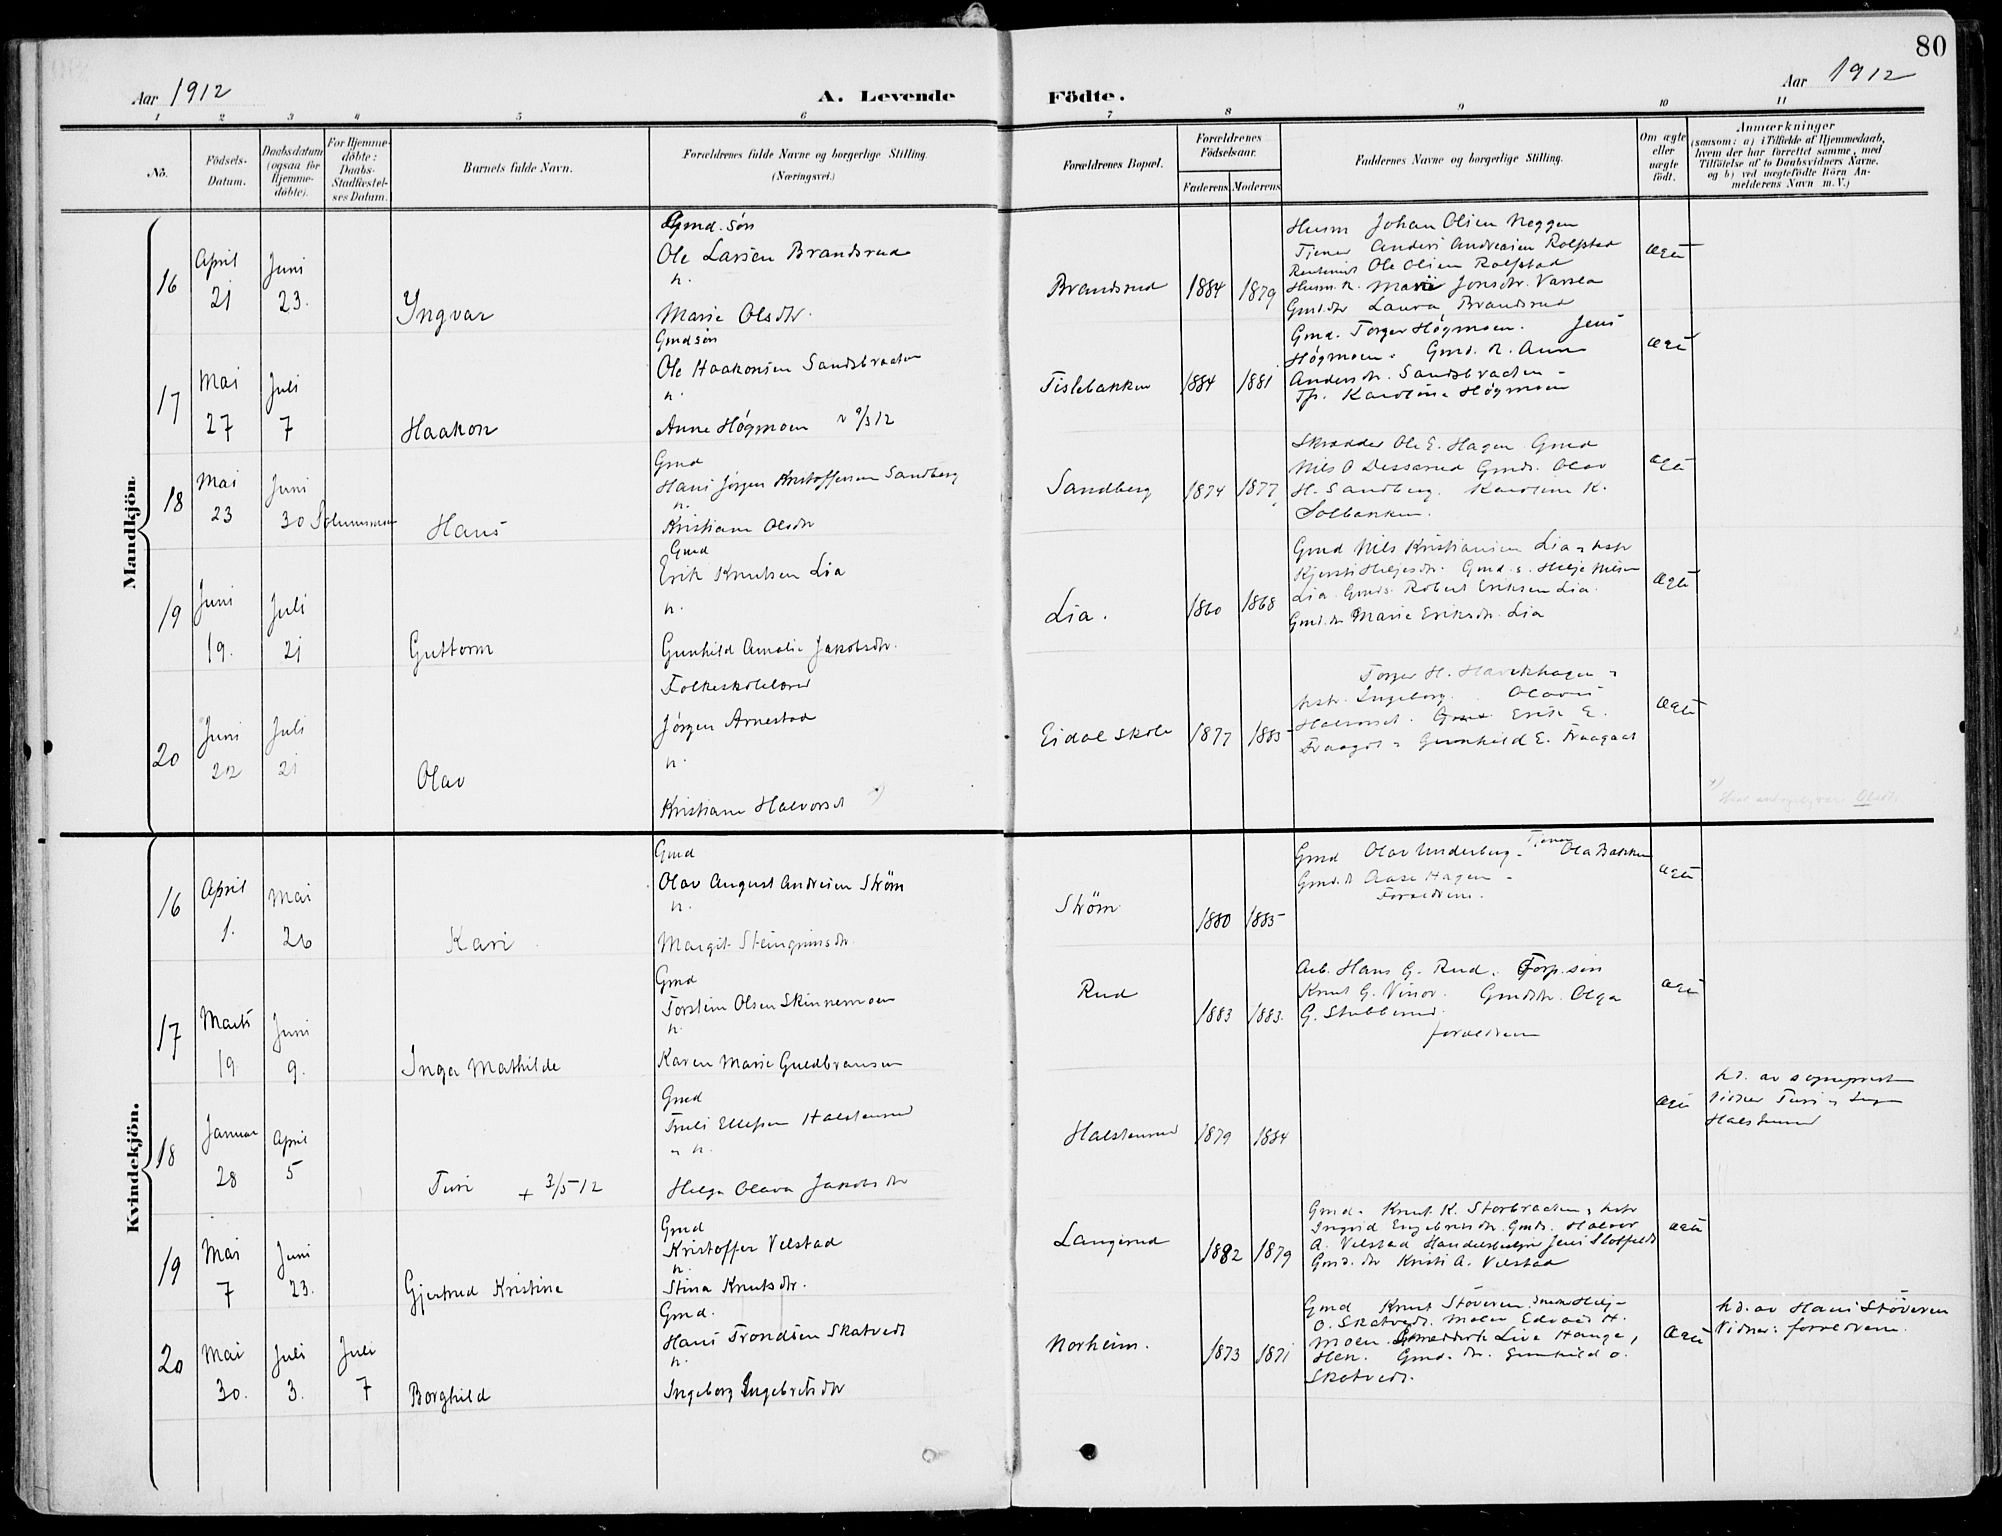 80
Aar 1912
A. Levende
Födte.
Aar 1912
1 2 3 4 5 6 7 8 9 10 11
No.
Födsels-Datum.
Daabsdatum (ogsaa for Hjemme-döbte).
For Hjemme-döbte: Daabs-Stadfæstel-ses Datum.
Barnets fulde Navn.
Forældrenes fulde Navne og borgerlige Stilling. (Næringsvei.)
Forældrenes Bopæl.
Forældrenes Födselsaar.
Faderens Moderens
Faddernes Navne og borgerlige Stilling.
Om ægte eller uægte födt.
Anmærkninger (saasom: a) i Tilfælde af Hjemmedaab, hvem der har forrettet samme, med Tilföielse af to Daabsvidners Navne, og b) ved uægtefödte Börn An-melderens Navn m. V.)
Mandkjön.
16 April 21 Juni 23.
Ingvar
Gmd. søn
Ole Larsen Brandsrud
h.
Marie Olsdtr.
Brandsrud 1884 1879
Husm Johan Olsen Neggen
Tjener Anders Andreasen Rolfstad
Ole Olsen Rolfstad
Husm. k. Marie Jonsdtr. Varsla
Gmd.dtr Laura Brandsrud
ægte
17 Mai 27 Juli 7
Haakon
Gmdsøn
Ole Haakonsen Sandsbraaten
h.
Anne Høgmoen v 9/3 12
Tislebakken 1884 1881
Gmd. Torger Høgmoen. Jens
Høgmoen. Gmd. k. Anne
Andersdtr. Sandsbraaten -
Tp. Karoline Høgmoen
ægte
18 Mai 23 Juni 30
Hans
Gmd
Hans Jørgen Kristoffersen Sandberg
h.
Kristiane Olsdtr
Sandberg 1874 1877
Skrædder Ole E. Hagen Gmd
Nils O Desserud Gmds. Olav
H. Sandberg. Karoline K.
Solbakken.
ægte
19 Juni 19. Juli 21
Guttorm
Gmd
Erik Knutsen Lia
h.
Gunhild Amalie Jakobsdtr.
Lia. 1860 1868
Gmd Nils Kristiansen Lia & hstr
Kjersti Helgesdtr. Gmd. s. Helje Nilsen
Lia. Gmds. Robert Eriksen Lia.
Gmd. dtr Marie Eriksdtr. Lia
ægte
20 Juni 22 Juli 21
Olav
Folkeskolelærer
Jørgen Arnestad
h.
Kristiane Halvorsdt x)
Eidal skole 1877 1885
Torger H. Haverkhagen &
hstr. Ingeborg. Olavus
Halvorset. Gmd. Erik E.
Fraagot & Gunhild E. Fraagaat
ægte
x)
Kvindekjön.
16 April 1. Mai 26
Kari
Gmd
Olav August Andresen Strøm
h.
Margit Steingrimsdtr.
Strøm 1880 1885
Gmd Olav Underberg - Tjener Ola Bakken
Gmd. d Aase Hagen -
Forældrene.
ægte
17 Marts 19 Juni 9.
Inga Mathilde
Gmd
Torstein Olsen Skinnemoen
h.
Karen Marie Guldbransen
Rud 1883 1883.
Arb. Hans G. Rud. Torp. søn
Knut G. Vinor. Gmdsdtr. Olga
G. Stubberud.
forældrene
ægte
18 Januar 28 April 5
Turi + 3/5 12
Gmd
Truls Ellefsen Halstensrud
& h.
Helga Olava Jakobsdtr
Halstensrud 1879 1884
ægte
hd. av sogneprest
Vidner Turi & Inga
Halstensrud
19 Mai 7 Juni 23.
Gjertrud Kristine
Gmd
Kristoffer Velstad
h.
Stina Knutsdtr.
Langerud 1882 1879
Gmd. Knut K. Storbraaten & hstr
Ingrid Engebretsdtr. Gmds. Halvor
A. Velstad Handelsbetjent Jens Slotfeldt
Gmd. dtr Kristi A. Velstad
ægte
20 Mai 30. Juli 3. Juli 7
Borghild
Gmd.
Hans Trondsen Skatvedt
h.
Ingeborg Ingebretsdtr
Norheim. 1873 1871
Gmd Knut Støveren. Helje
O. Skatvedt. Møller Edvart H.
Moen. Live Hauge,
Hen. Gmd. dtr. Gunhild O.
Skatvedt.
ægte
hd. av Hans Støveren
Vidner: forældrene.